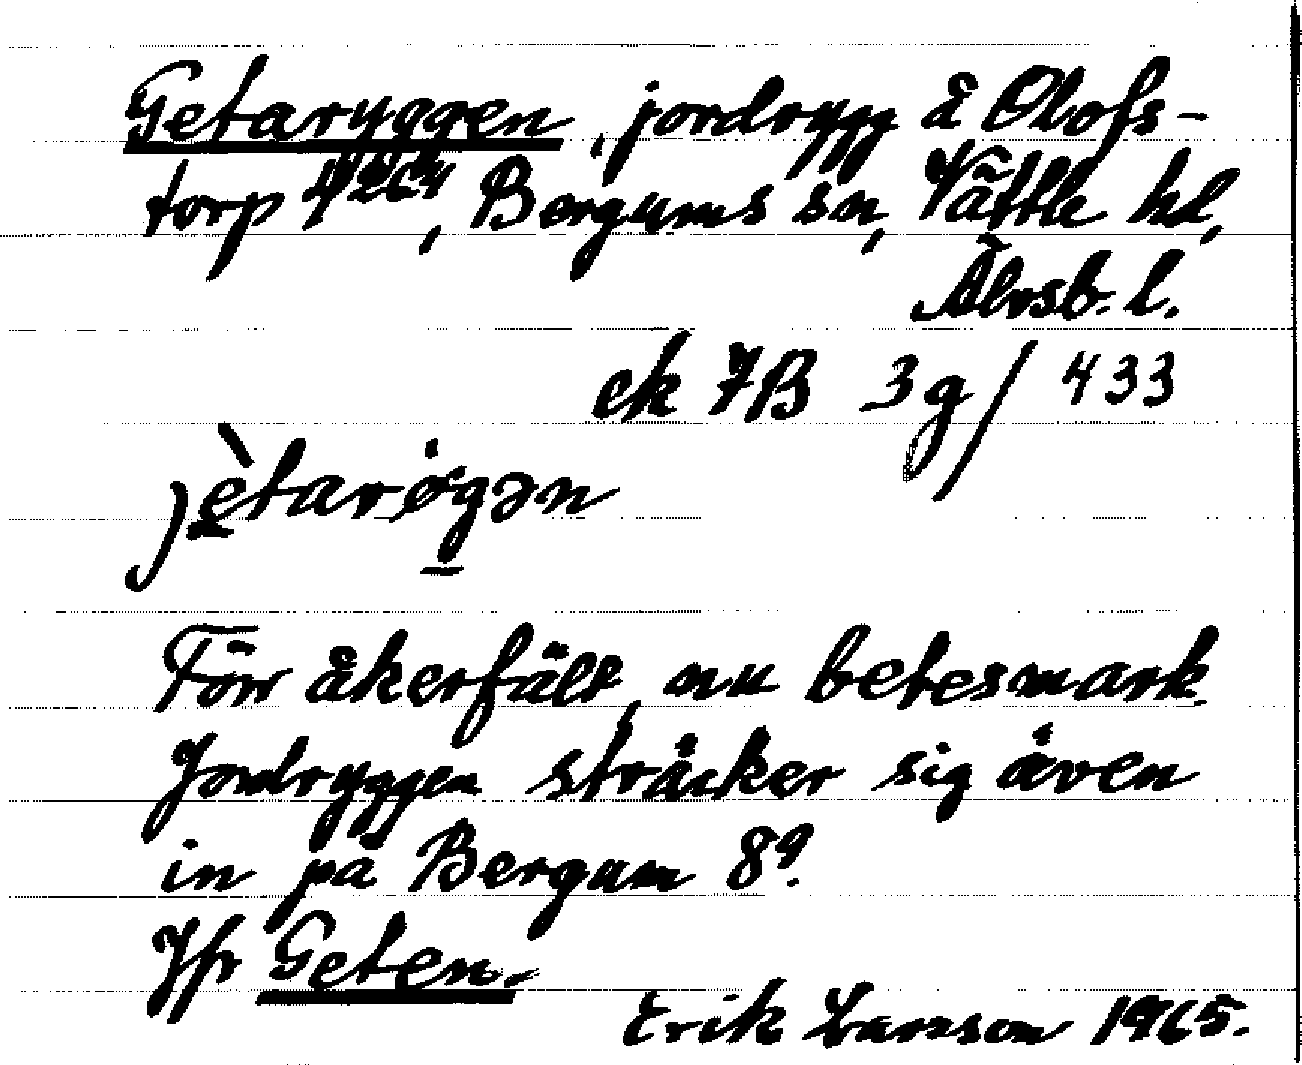 Getaryggen, jordrygg å Olofs-
torp 4²⁶⁴, Bergums sn, Vättle hd,
Älvsb. l.
ek 7B 3g/433
jètarøgən
Förr åkerfält, nu betesmark.
Jordryggen sträcker sig även
in på Bergum 8⁹.
Jfr Geten.
Erik Larsson 1965.